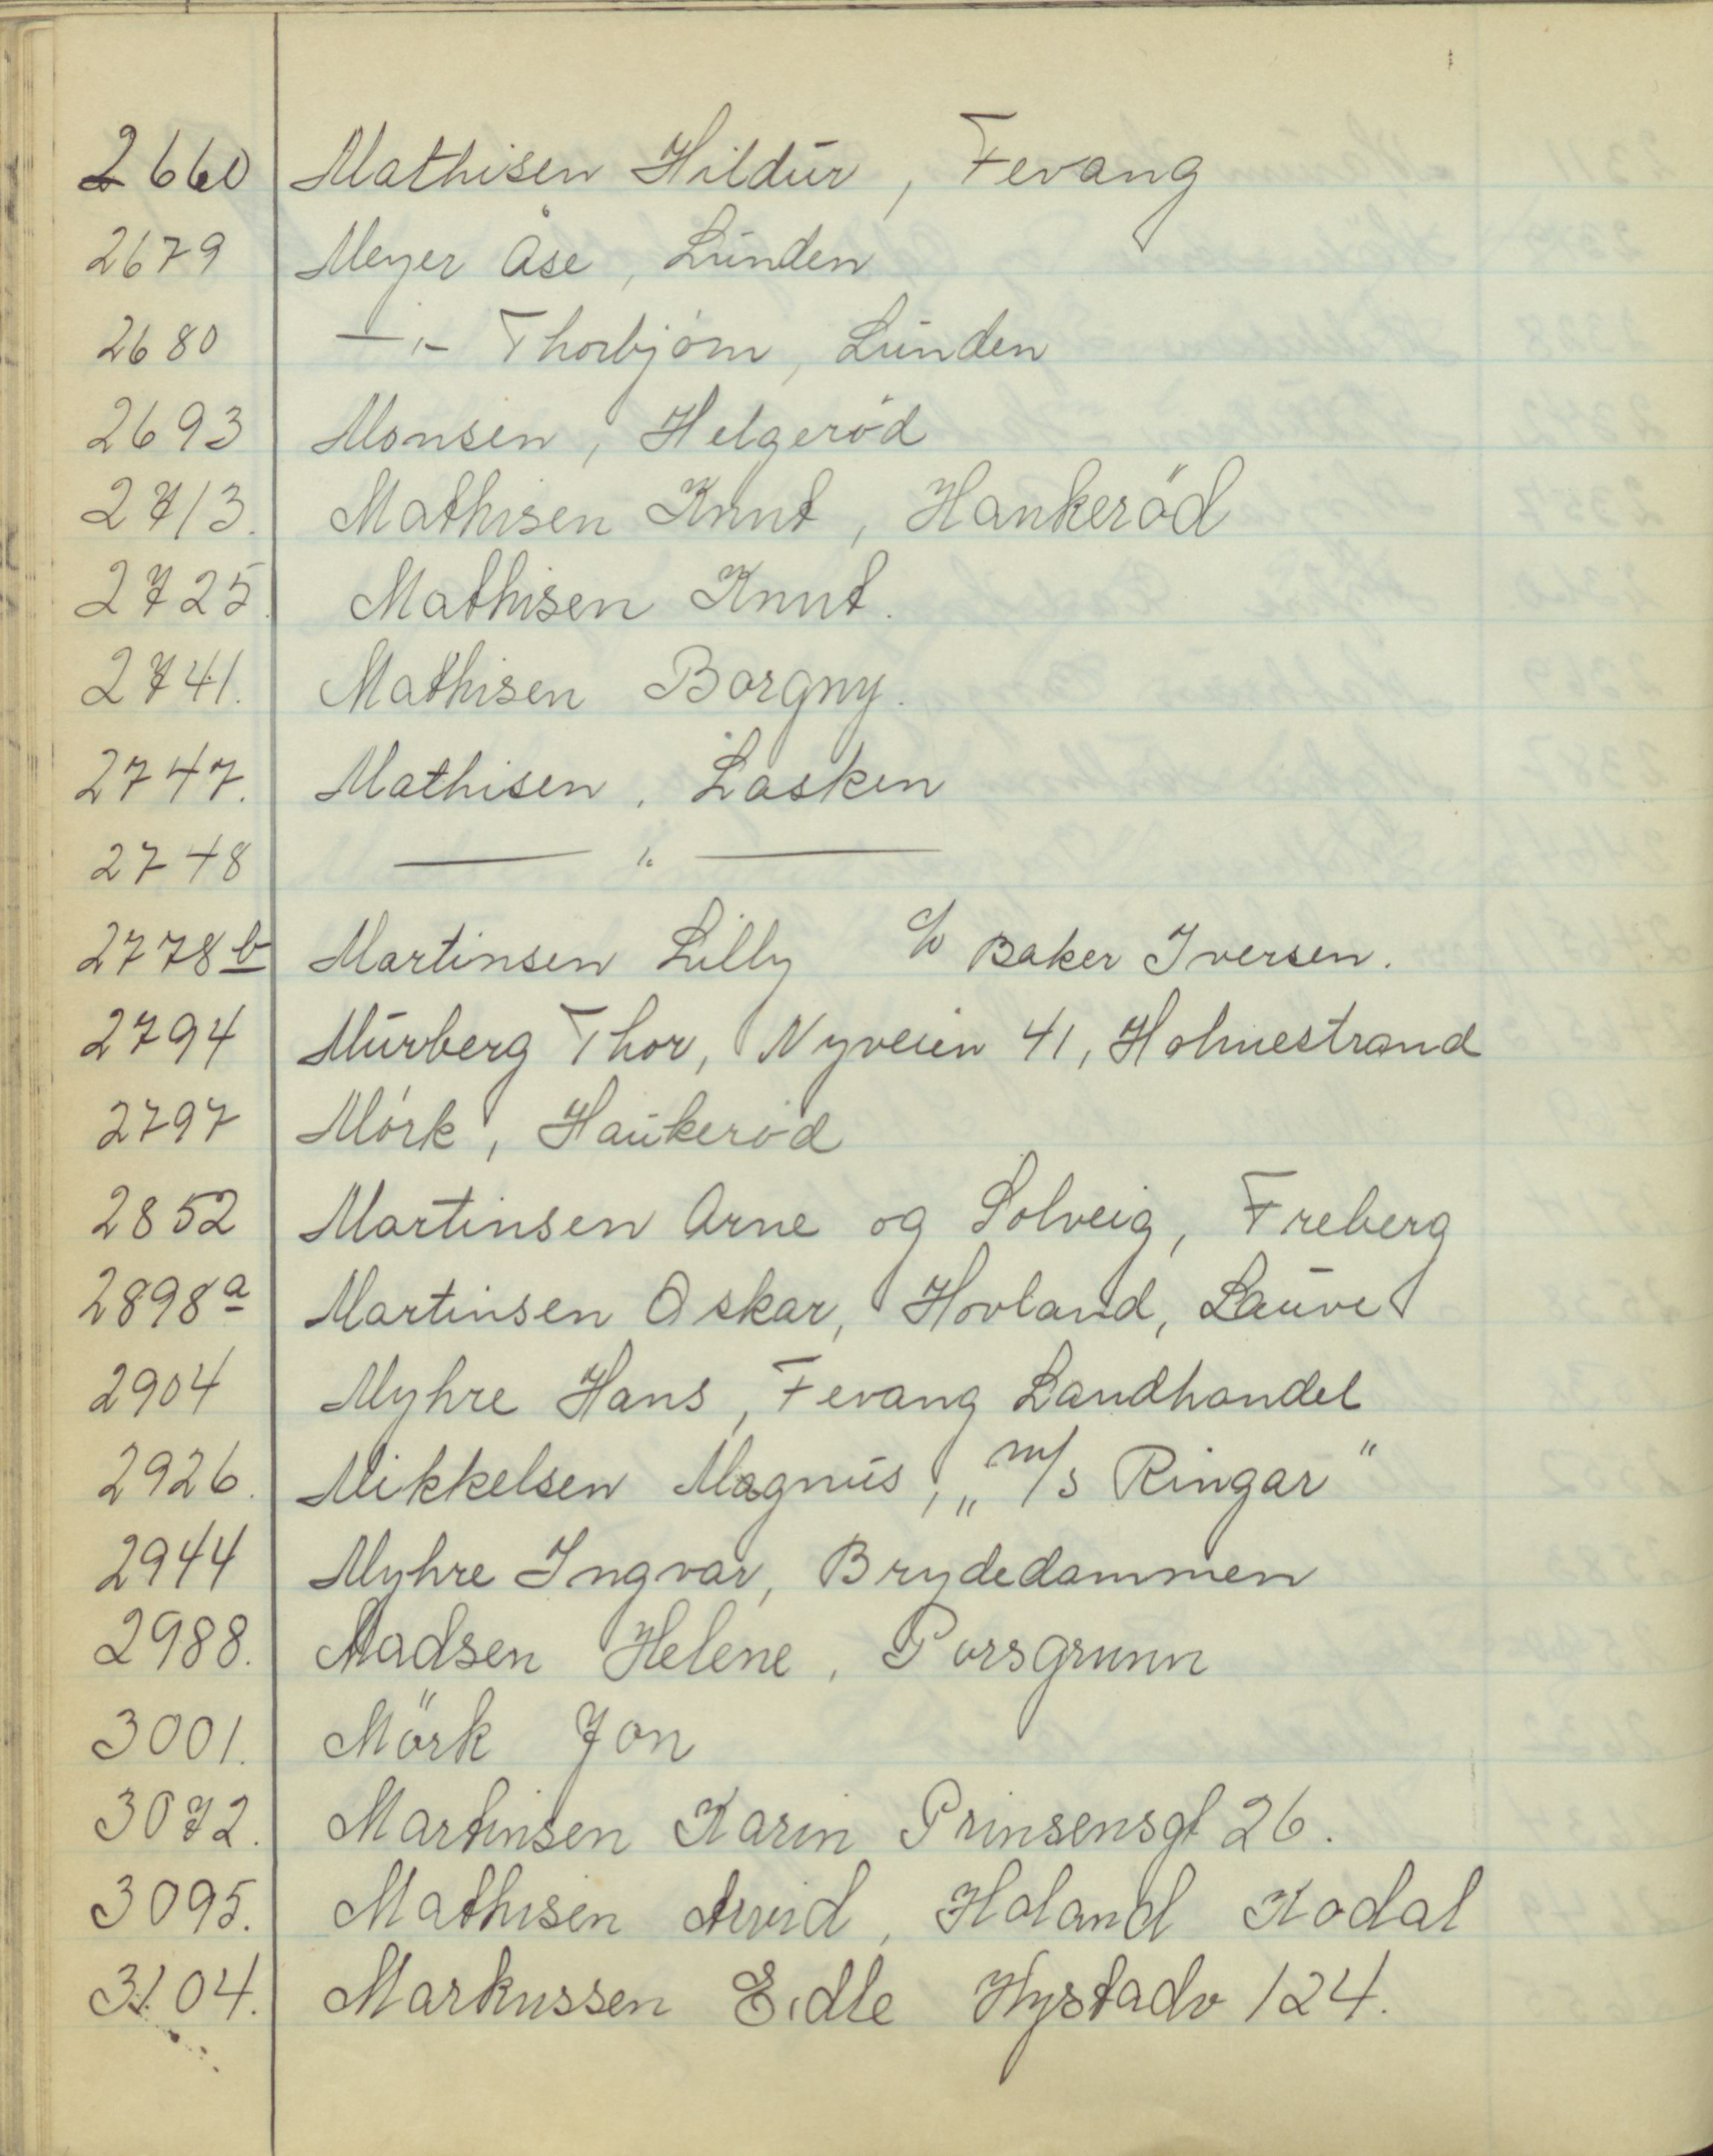 2660 Mathisen Hildur, Fevang
2679 Meyer Åse, Lunden
2680 —„— Thorbjørn, Lunden
2693 Monsen, Helgerød
2713. Mathisen Knut, Haukeröd
2725. Mathisen Knut.
2741. Mathisen Borgny.
2747. Mathisen, Låsken
2748 —„—
2778b Martinsen Lilly c/o Baker Iversen.
2794 Murberg Thor, Nyveien 41, Holmestrand
2797 Mørk, Haukerød
2852 Martinsen Arne og Solveig, Freberg
2898a Martinsen Oskar, Hovland, Lauve
2904 Myhre Hans, Fevang Landhandel
2926. Mikkelsen Magnus, „m/s Ringar"
2944 Myhre Ingvar, Brydedammen
2988. Madsen Helene, Porsgrunn
3001. Mörk Jon
3072. Martinsen Karin Prinsensgt 26.
3095. Mathisen Arvid, Holand Kodal
3104. Markussen Eidle Hystadv 124.